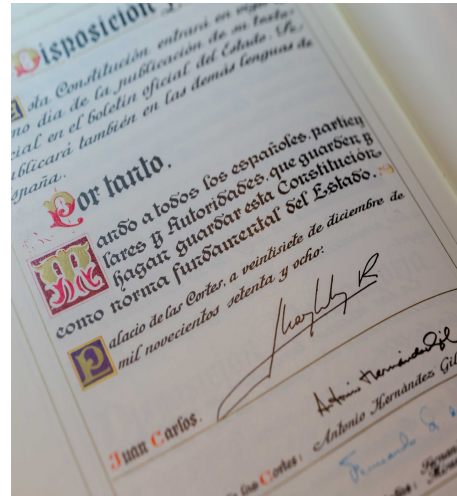 Disposición
Esta Constitución entrará en vigor
mo día de la publicación de su texto
cial en el boletín oficial del Estado. Se
ublicará también en las demás lenguas de
spaña.
Por tanto.
Mando a todos los españoles, particu
lares y Autoridades, que guarden y
hagan guardar esta Constitución
como norma fundamental del Estado.
Palacio de las Cortes, a veintisiete de diciembre de
mil novecientos setenta y ocho:
Juan Carlos R
Juan Carlos.
Antonio Hernández Gil
de las Cortes: Antonio Hernández Gil
Fernando